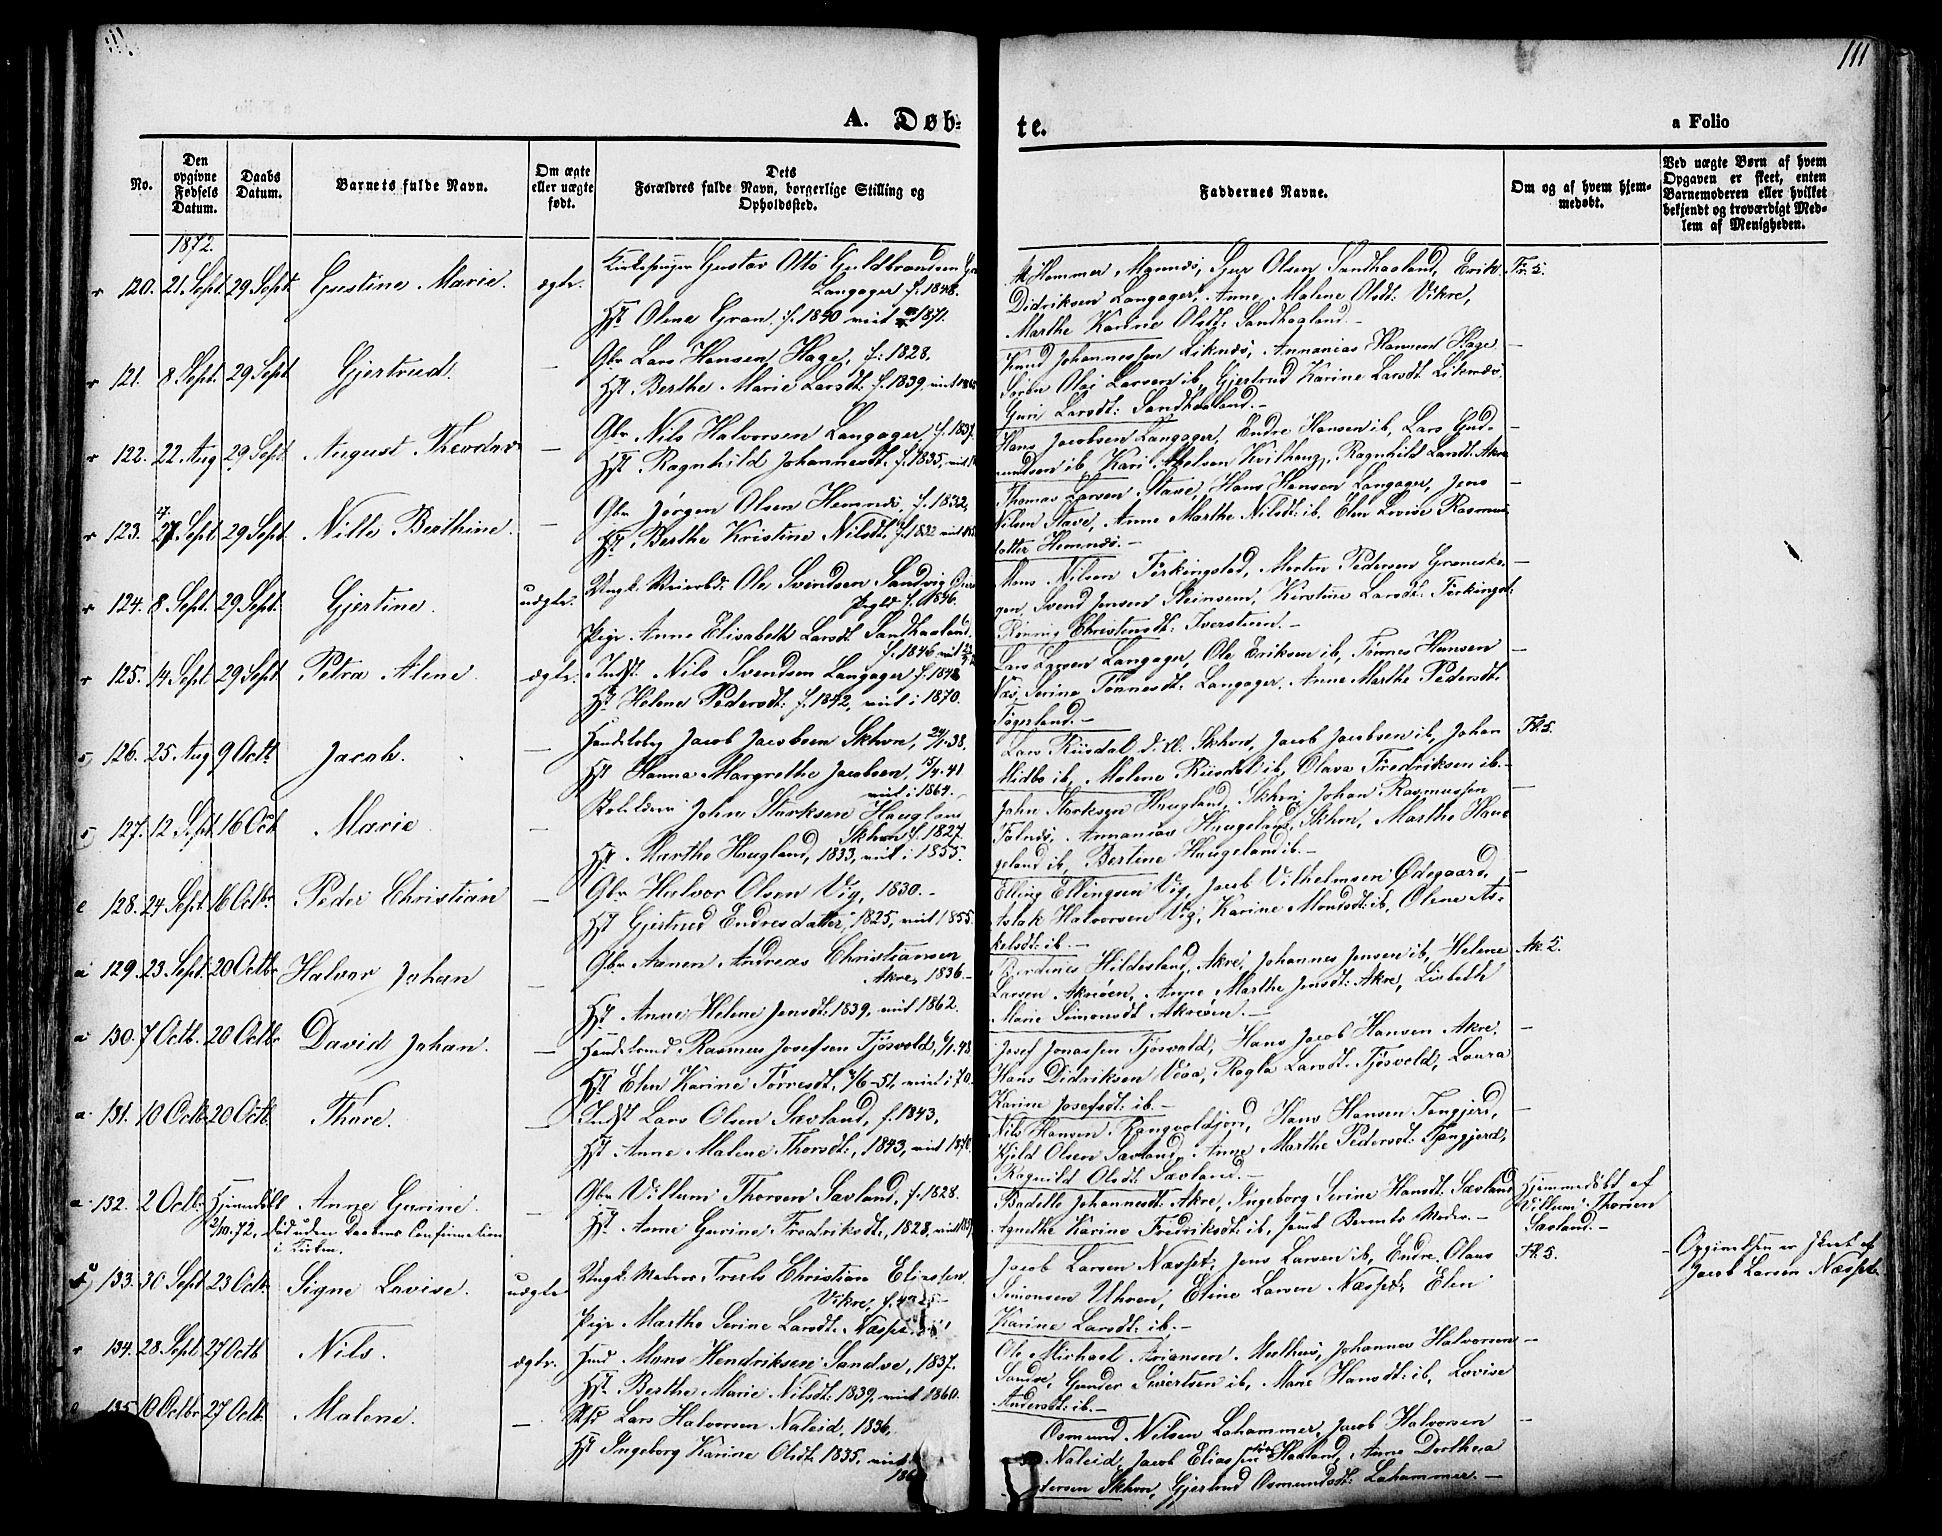 111
A. Døb-
te.
a Folio
No.
Den opgivne Fødsels Datum.
Daabs Datum.
Barnets fulde Navn.
Om ægte eller uægte født.
Dets Forældres fulde Navn, borgerlige Stilling og Opholdssted.
Faddernes Navne.
Om og af hvem hjemmedøbt.
Ved uægte Børn af hvem Opgaven er skeet, enten Barnemoderen eller hvilket bekjendt og troværdigt Medlem af Menigheden.
1872.
120. 21 Sept. 29 Sept. Gustine Marie. ægte.
Kirkesanger Gustav Otto Guldbrandsen
Langager f. 1848.
Hst. Olene Gran. f. 1840 viet 1871.
Hemmer Munnæs, Gur Olsen Sandhaaland, Erik
Didriksen Langager, Anne Malene Olsdt. Vikre,
Marthe Karine Olsdt. Sandhaaland.-
121. 8 Sept. 29 Sept. Gjertrud. —
Gbr Lars Hansen Hage, f. 1828.
Hst. Berthe Marie Larsdt. f. 1839. viet
Knud Johannessen Liknæs, Annanias Hansen Hage
Søren Olai Larsen ib, Gjertrud Karine Larsdt. Liknæs,
Guri Larsdt. Sandhaaland.-
122. 22 Aug 29 Sept. August Theodor —
Gbr Nils Halvorsen Langager, f. 1837.
Hst. Ragnhild Johannesdt. f. 1835, viet
Hans Jacobsen Langager, Endre Hansen ib, Lars Gud-
mundsen ib, Kari Nielsen Kvilhaug, Ragnhild Larsdt. Akre
123. 27 Sept 29 Sept. Nille Berthine. —
Gbr Jørgen Olsen Hemnæs, f. 1832,
Hst. Berthe Kristine Nilsdt. f. 1832 viet
Thomas Larsen Stave, Hans Hansen Langager, Jens
Nilsen Stave, Anne Marthe Nilsdt. ib. Elen Lovise Rasmus
datter Hemnæs.-
124. 8. Sept. 29 Sept. Gjertine. uægte.
Ungk. Ole Svendsen Sandvig
f. 1846.
Pige Anne Elisabeth Larsdt. Sandhaaland.
f. 1846
Hans Nilsen Ferkingstad, Morten Pedersen
Svend Jensen Steinsem, Kirstine Larsdt. Ferkingst.
Rønnig Christensdt. Iversteen.-
125. 14 Sept 29 Sept. Petra Alene. ægte.
Indst. Nils Svendsen Langager f. 1848
Hst. Helene Pedersdt. f. 1842, viet i 1870.
Lars Larsen Langager, Ole Eriksen ib, Tønnes Hansen
Næs, Serine Tønnesdt. Langager, Anne Marthe Pedersdt.
126. 25 Aug 9 Octb. Jacob. —
Handelsbg Jacob Jacobsen Skhvn, 24/1.38.
Hst. Hanna Margrethe Jacobsen, 15/4.41
viet i 1864.-
Lars Riisdal d. Æ. Skhvn, Jacob Jacobsen ib, Johan
Midbø ib, Malene Riisdal ib, Olava Fredriksen ib.-
127. 12 Sept. 16 Oct Marie —
John Storksen Haugland
Skhvn f. 1827.
Hst. Marthe Haugland, 1833, viet i 1855.
John Storksen Haugland, Skhvn; Johan Rasmussen
Annanias Haugeland, Skhvn, Marthe Hau
geland ib, Bertine Haugeland ib.-
128. 24 Sept. 16 Octbr. Peder Christian —
Gbr Halvor Olsen Vig, 1830.-
Hst. Gjertrud Endresdatter, 1825, viet 1855.
Elling Ellingsen Vig, Jacob Vilhelmsen Ødegaard,
Aslak Halvorsen Vig, Karine Mondsdt. ib, Olene As-
kelsdt. ib.-
129. 23. Sept. 20 Octbr. Halvor Johan —
Gbr Aanen Andreas Christiansen
Akre, 1836.-
Hst. Anne Helene Jensdt. 1839, viet 1862.
Hildesland, Akre, Johannes Jensen ib, Helene
Larsen Akreøen, Anne Marthe Jensdt. Akre, Lisbeth
Marie Simonsdt. Akreøen.-
130. 7 Octb. 20 Octbr. David Johan. —
Rasmus Josefsen Tjøsvold, 6/1.48.
Hst. Elen Karine Tørresdt, 4/6-51, viet i 70.
Josef Jonassen Tjøsvold, Hans Jacob Hansen Akre,
Hans Didriksen Veaa, Ragla Larsdt. Tjøsvold, Laura
Karine Josefsdt. ib.-
131. 10 Octb. 20 Octb. Thore. —
Indst. Lars Olsen Sævland, f. 1843,
Hst. Anne Malene Thorsdt., 1843, viet
Nils Hansen Rangvaldjord, Hans Hansen Tangjerd,
Kjeld Olsen Sævland, Anne Marthe Pedersdt. Tangjerd,
Ragnild Olsdt. Sævland.-
132. 2 Octbr. Hjemdøbt Anne Gurine.
2/10.72, død uden Daabens Confirmation
i Kirken.
Gbr Villum Thorsen Sævland, f. 1828.
Hst. Anne Gurine Fredriksdt., 1828, viet
Badille Johannesdt. Akre, Ingeborg Serine Hansdt. Sævland
Agnethe Karine Fredriksdt. ib, samt Barnets Moder.-
Hjemmedøbt af
Villum Thorsen
Sævland.-
133. 30 Sept 23 Octb. Signe Lovise. uægte
Ungk. Truls Christian Eliassen
Vikre, f.
Pige Marthe Serine Larsdt. Næsset
Jacob Larsen Næsset, Jens Larsen ib, Endre Olaus
Simonsen Uhren, Eline Larsen Næsset, Elen
Karine Larsdt. ib.-
Opgivelsen er skeet af
Jacob Larsen Næsset.
134. 28 Sept. 27 Octb Nils. ægte.
Mons Hendriksen Sandve, 1837.
Hst. Berthe Marie Nilsdt. 1839, viet 1860.
Ole Michael Ariansen Mælhus, Johannes Halvorsen
Sandve, Gunder Sivertsen ib, Marie Hansdt. ib, Lovise
Andersdt. ib.-
135. 10 Octbr. 27 Octb. Malene. —
Lars Halvorsen Naleid, 1836,
Hst. Ingeborg Karine Olsdt. 1835, viet
Osmund Nilsen Lahammer, Jacob Halvorsen
Naleid, Jacob Eliassen Haaland, Anne Dorthea
Skhvn, Gjertrud Osmundsdt. Lahammer.-